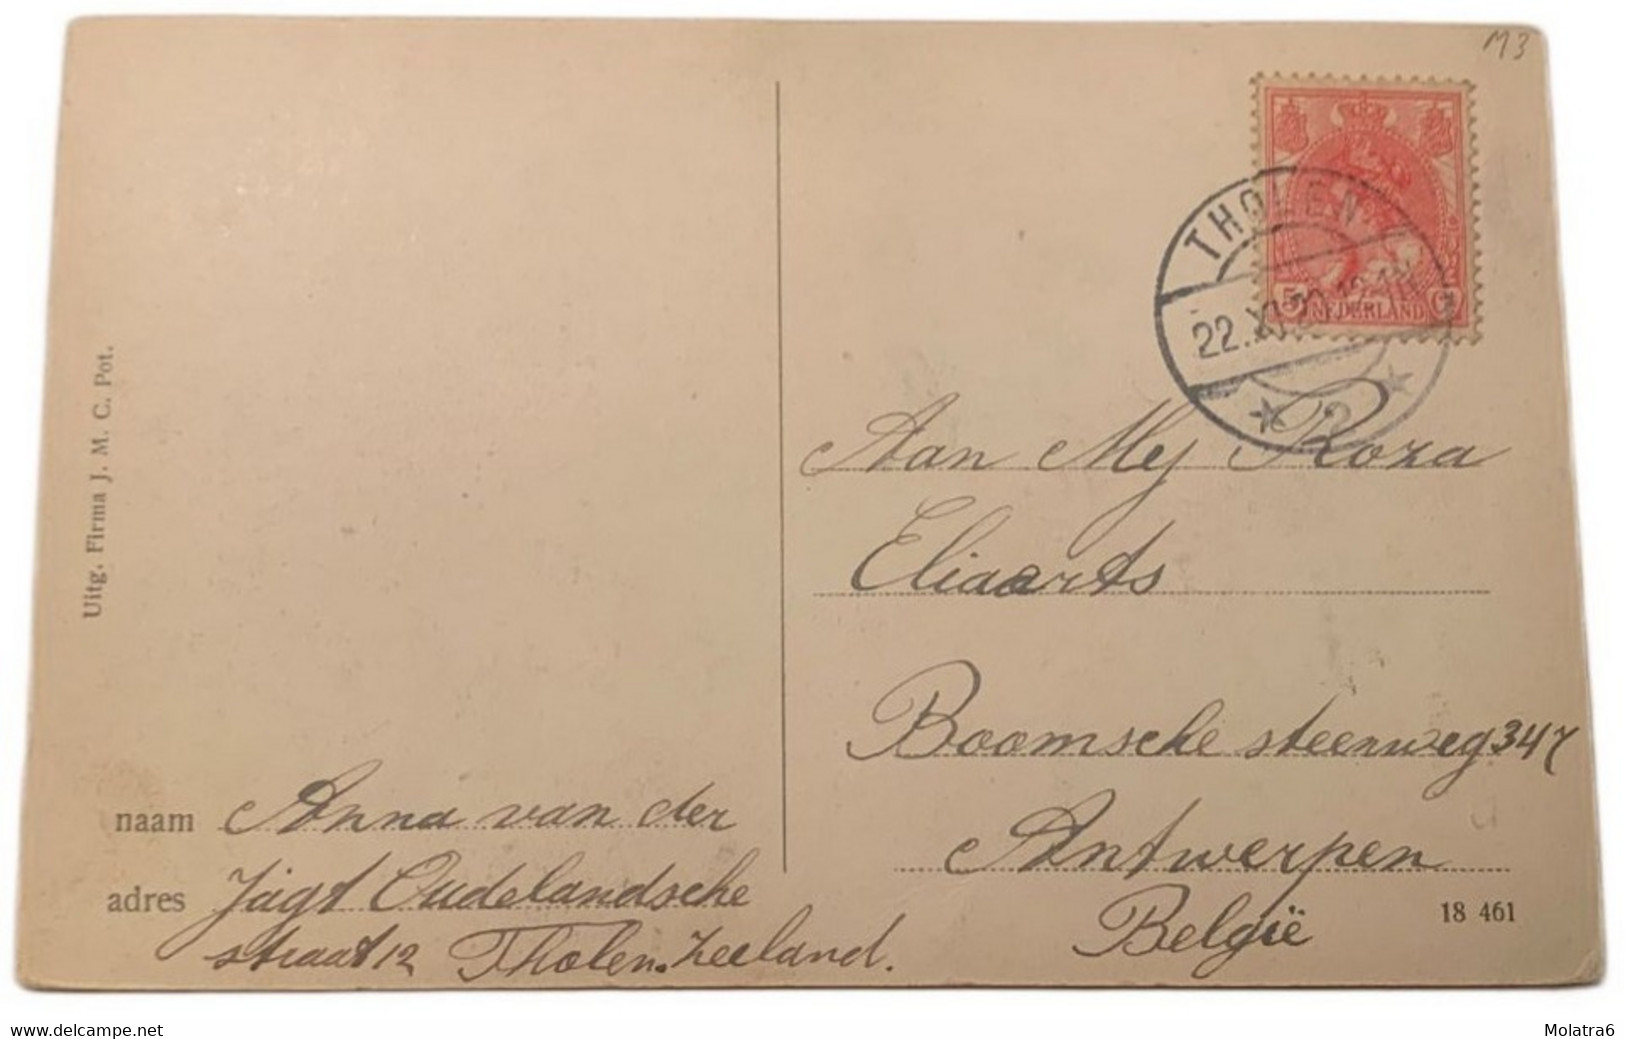 M3
THOLEN
5 NEDERLAND Ct
22.XI.20
2
Aan Mej Roza
Eliaerts
Boomsche steenweg 347
Antwerpen
België
18 461
Uitg. Firma J. M. C. Pot.
naam Anna van der
adres Jagt Oudelandsche
straat 12 Tholen. Zeeland.
www.delcampe.net
Molatra6